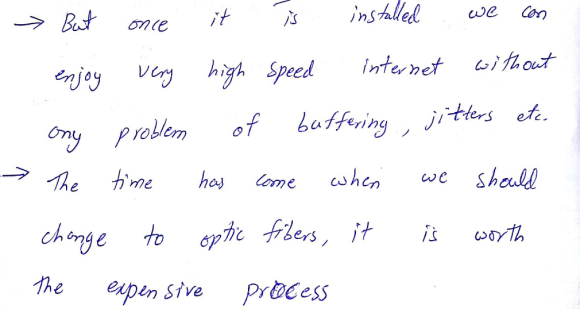 → But once it is installed we can
enjoy very high speed internet without
any problem of buffering, jitters etc.
→ The time has come when we should
change to optic fibers, it is worth
the expensive process